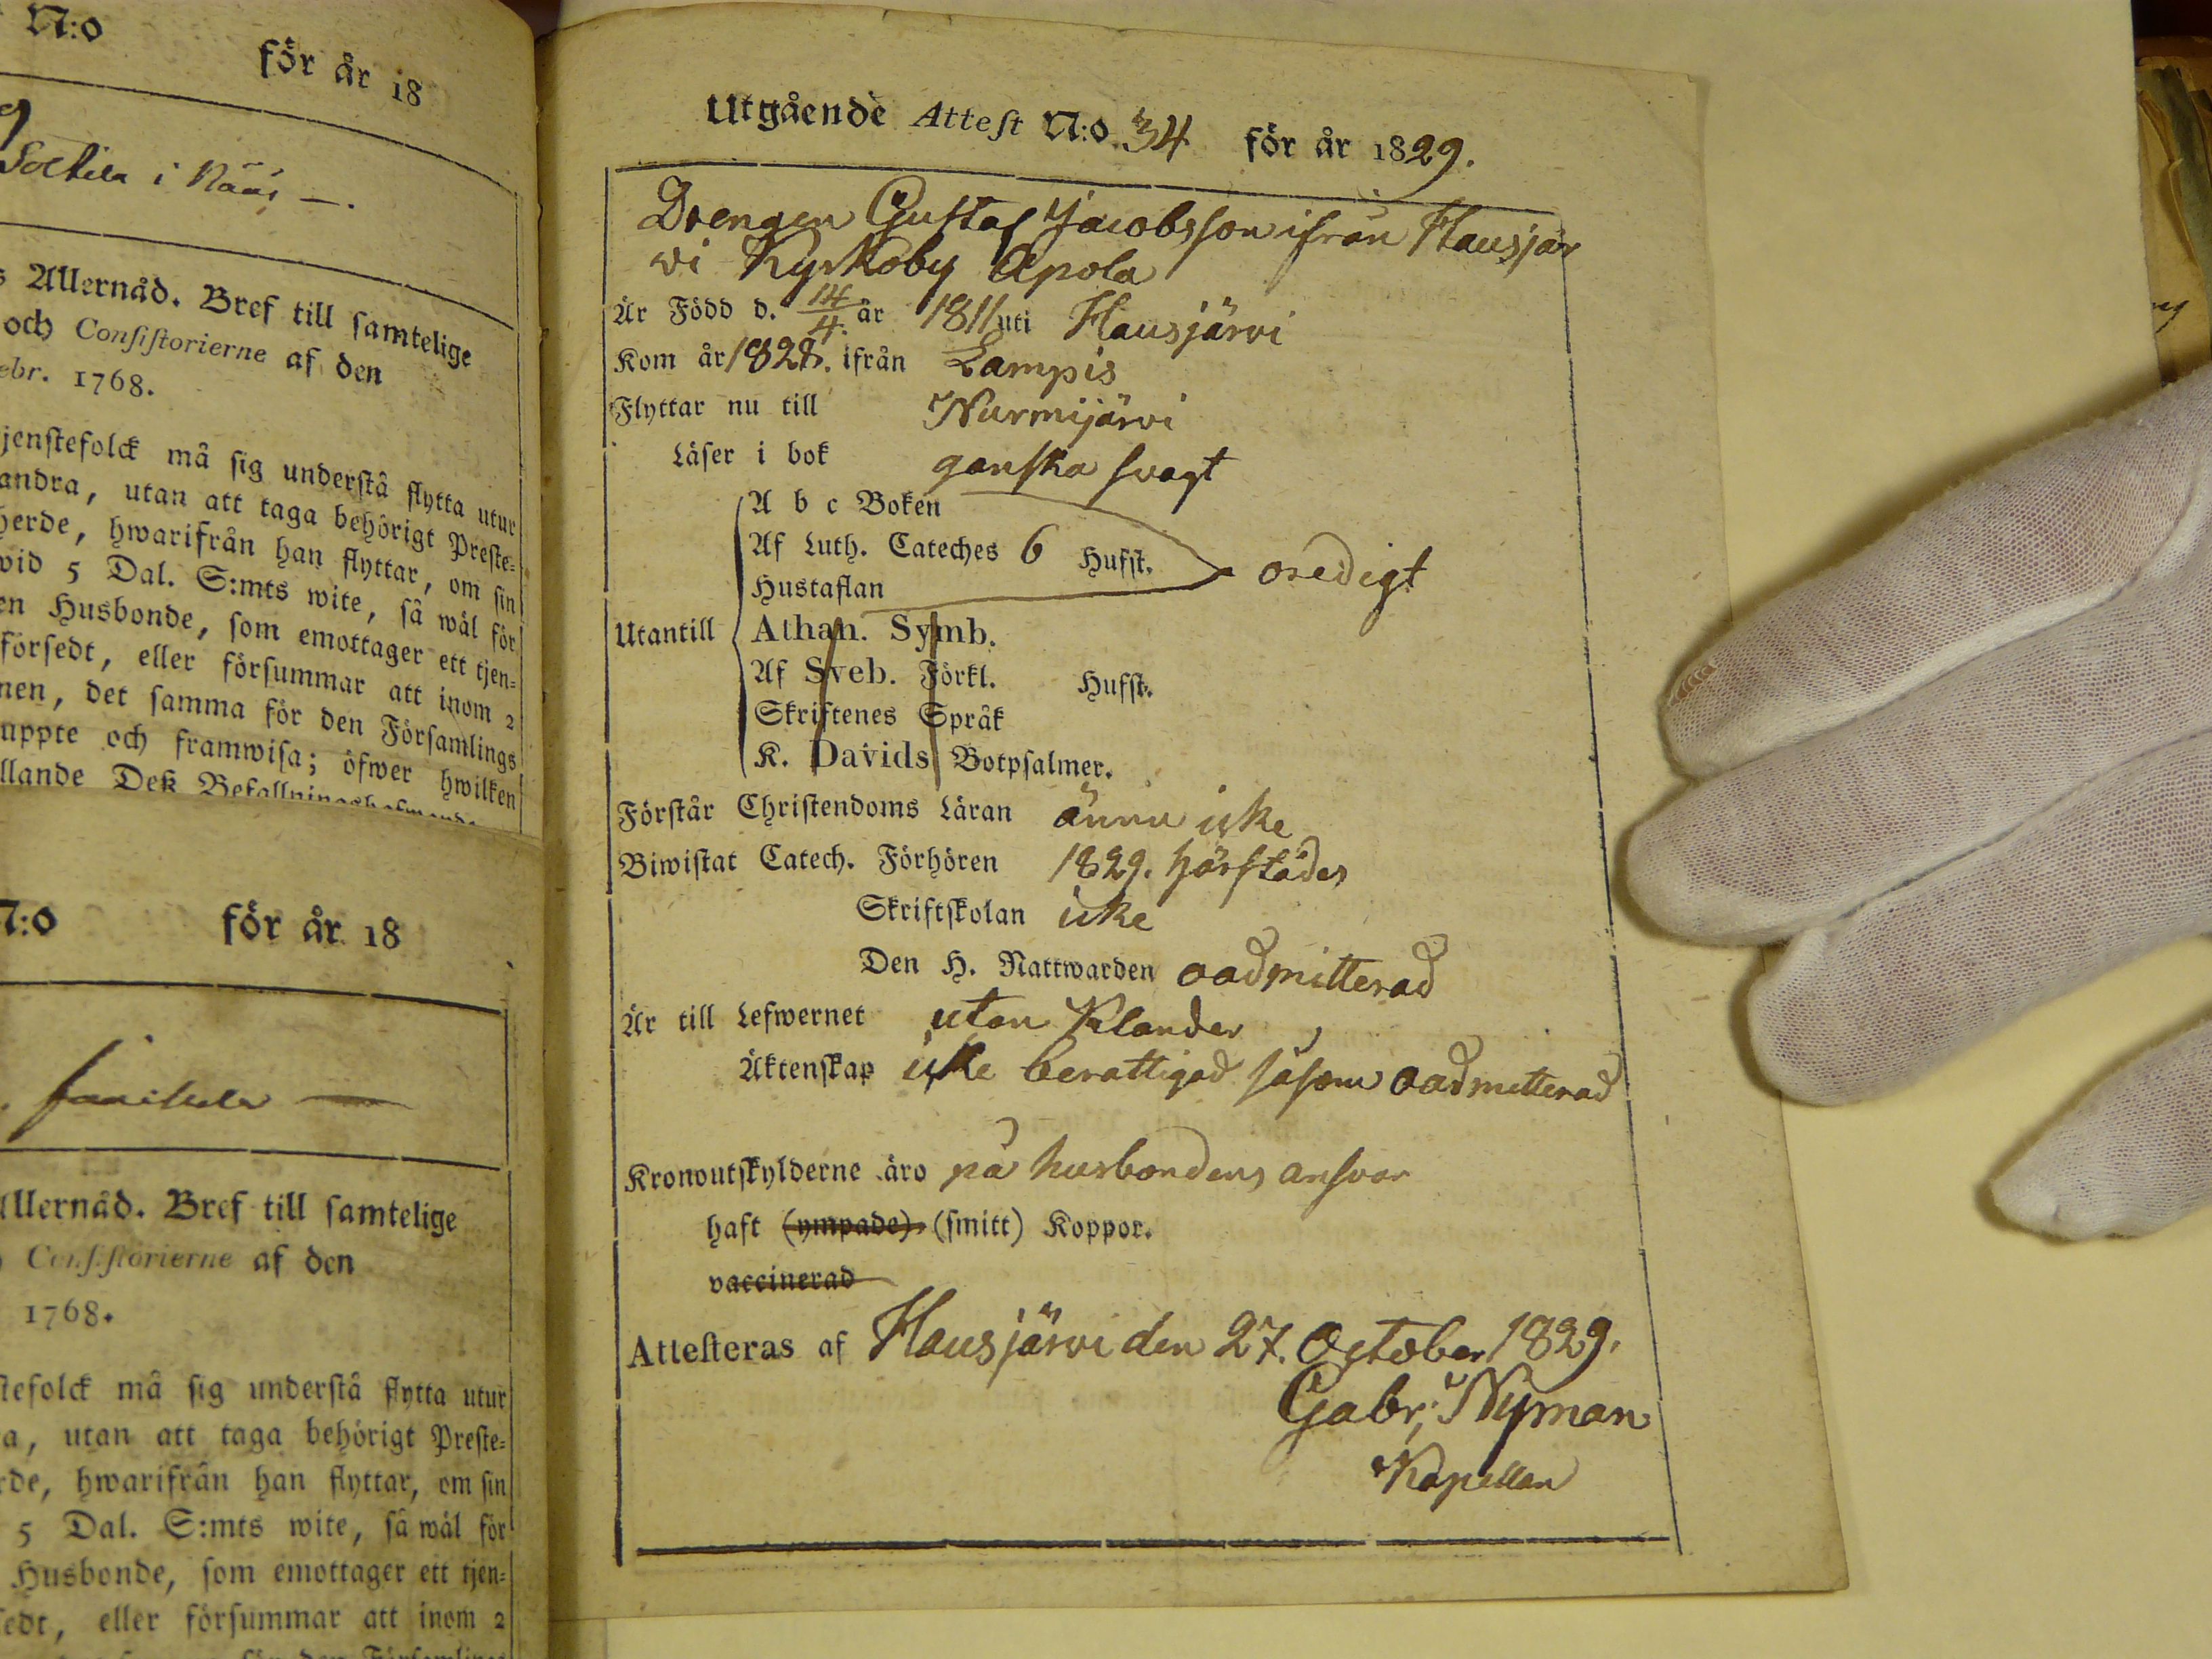 N:o för år 18
i Nääs —.
Allernåd. Bref till samtelige
och Consistorierne af den
ebr. 1768.
jenstefolck må sig understå flytta utur
andra, utan att taga behörigt Preste-
herde, hwarifrån han flyttar, om sin
wid 5 Dal. S:mts wite, så wäl för
en Husbonde, som emottager ett tjen-
försedt, eller försummar att inom 2
nen, det samma för den Församlings
uppte och framwisa; öfwer hwilken
llande Deß Befallningshafwande
N:o för år 18
Allernåd. Bref till samtelige
Consistorierne af den
1768.
stefolck må sig understå flytta utur
a, utan att taga behörigt Preste-
rde, hwarifrån han flyttar, om sin
5 Dal. S:mts wite, så wäl för
Husbonde, som emottager ett tjen-
sedt, eller försummar att inom 2
Utgående Attest N:o 34 för år 1829.
Drengen Gustaf Jacobsson ifrån Hausjär
vi Kyrkoby Apola
Är Född d. 14/4. år 1811 uti Hausjärvi
Kom år 1828. ifrån Lampis
Flyttar nu till Nurmijärvi
Läser i bok ganska svagt
A b c Boken
Af Luth. Cateches 6 Hufst. oredigt
Hustaflan
Utantill Athan. Symb.
Af Sveb. Förkl. Hufst.
Skriftenes Språk
K. Davids Botpsalmer.
Förstår Christendoms Läran ännu icke
Biwistat Catech. Förhören 1829. härstädes
Skriftskolan icke
Den H. Nattwarden oadmitterad
Är till Lefwernet utan Klander
Äktenskap icke berättigad såsom oadmitterad
Kronoutskylderne äro på husbondens ansvar
haft (ympade) (smitt) Koppor.
vaccinerad
Attesteras af Hausjärvi den 27. October 1829.
Gabr: Nyman
Kapellan